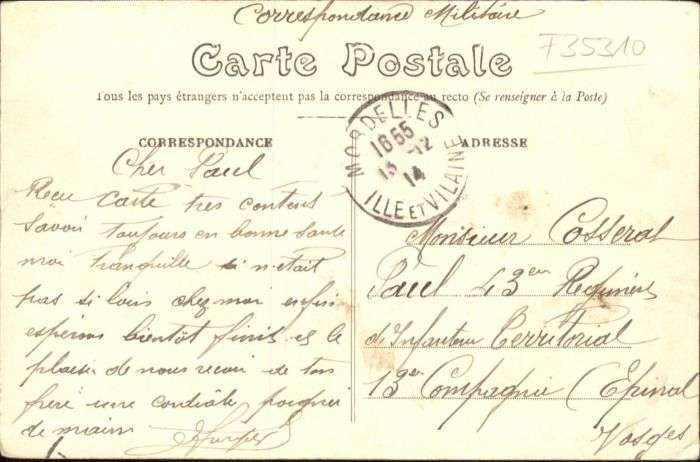 Correspondance Militaire
F35310
Carte Postale
Tous les pays étrangers n'acceptent pas la correspondance au recto (Se renseigner à la Poste)
CORRESPONDANCE
ADRESSE
MORDELLES
1655
13-12
14
ILLE ET VILAINE
Cher Paul
Reçu carte tres contens
savoir toujours en bonne sante
moi tranquille si n'etait
pas si loin chez moi enfin
espérons bientôt finir et le
plaisir de nous revoir de ton
frère une cordiale poignée
de main
Monsieur Cosserat
Paul 43em Regiment
d'Infanterie Territorial
13em Compagnie Epinal
Vosges